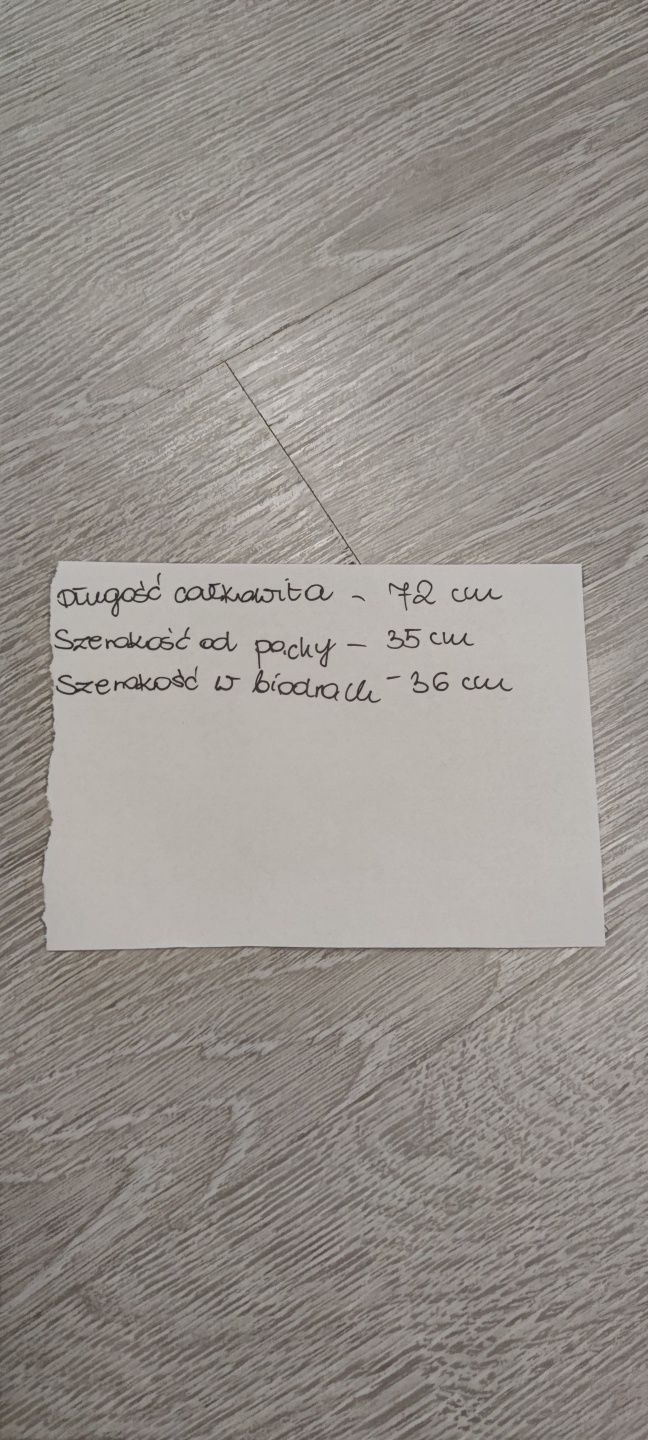 Długość całkowita - 72 cm
Szerokość od pachy - 35 cm
Szerokość w biodrach - 36 cm